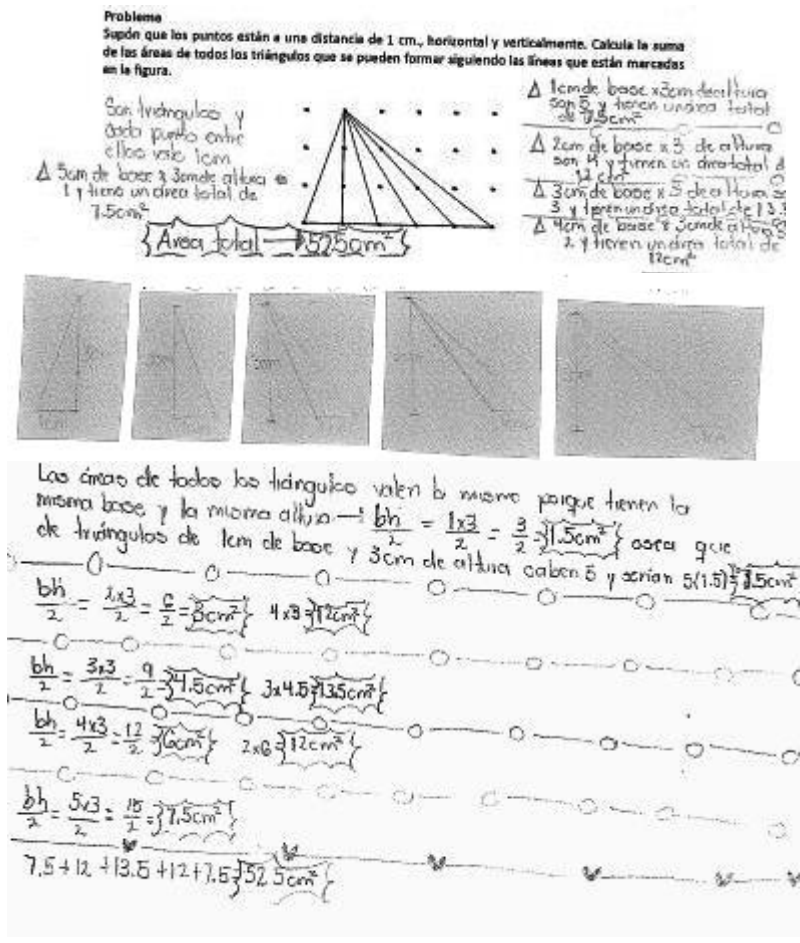 Problema
Supón que los puntos están a una distancia de 1 cm., horizontal y verticalmente. Calcula la suma
de las áreas de todos los triángulos que se pueden formar siguiendo las líneas que están marcadas
en la figura.
Son triángulos y
cada punto entre
ellos vale 1cm
Δ 5cm de base x 3cm de altura es
1 y tiene un área total de
7.5cm²
{Area total → 525cm²}
Δ 1cm de base x 3cm de altura
son 5 y tienen un área total
de 7.5cm²
Δ 2cm de base x 3 de altura
son 4 y tienen un área total d
12 cm²
Δ 3cm de base x 3 de altura so
3 y tienen un área total de 13.5
Δ 4cm de base x 3cm de altura so
2 y tienen un área total de
12cm²
Las áreas de todos los triángulos valen lo mismo porque tienen la
misma base y la misma altura → bh/2 = 1x3/2 = 3/2 = {1.5cm²} osea que
de triángulos de 1cm de base y 3cm de altura caben 5 y serían 5(1.5) = 7.5cm²
bh/2 = 2x3/2 = 6/2 = {3cm²} 4x3={12cm²}
bh/2 = 3x3/2 = 9/2 = {4.5cm²} 3x4.5={13.5cm²}
bh/2 = 4x3/2 = 12/2 = {6cm²} 2x6={12cm²}
bh/2 = 5x3/2 = 15/2 = {7.5cm²}
7.5+12+13.5+12+7.5={52.5cm²}